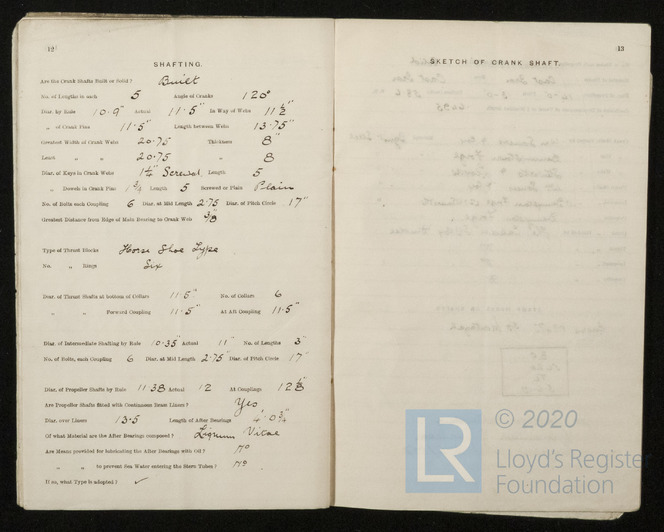 12
SHAFTING.
Are the Crank Shafts Built or Solid ? Built
No. of Lengths in each 5 Angle of Cranks 120°
Diar. by Rule 10·9" Actual 11·5" In Way of Webs 11½"
„ of Crank Pins 11·5" Length between Webs 13·75"
Greatest Width of Crank Webs 20·75 Thickness 8"
Least „ „ 20·75 „ 8
Diar. of Keys in Crank Webs 1¼" Screwed Length 5
„ Dowels in Crank Pins 1¾ Length 5 Screwed or Plain Plain
No. of Bolts each Coupling 6 Diar. at Mid Length 2·75 Diar. of Pitch Circle 17"
Greatest Distance from Edge of Main Bearing to Crank Web 3/8
Type of Thrust Blocks Horse Shoe Type
No. „ Rings Six
Diar. of Thrust Shafts at bottom of Collars 11·5" No. of Collars 6
„ „ Forward Coupling 11·5" At Aft Coupling 11·5"
Diar. of Intermediate Shafting by Rule 10·35 Actual 11" No. of Lengths 3
No. of Bolts, each Coupling 6 Diar. at Mid Length 2·75" Diar. of Pitch Circle 17"
Diar. of Propeller Shafts by Rule 11·38 Actual 12 At Couplings 12⅛
Are Propeller Shafts fitted with Continuous Brass Liners ? Yes
Diar. over Liners 13·5 Length of After Bearings 4'·0¾"
Of what Material are the After Bearings composed ? Lignum Vitae
Are Means provided for lubricating the After Bearings with Oil ? No
„ „ to prevent Sea Water entering the Stern Tubes ? No
If so, what Type is adopted ? ✓
13
SKETCH OF CRANK SHAFT.
LR
© 2020
Lloyd's Register
Foundation